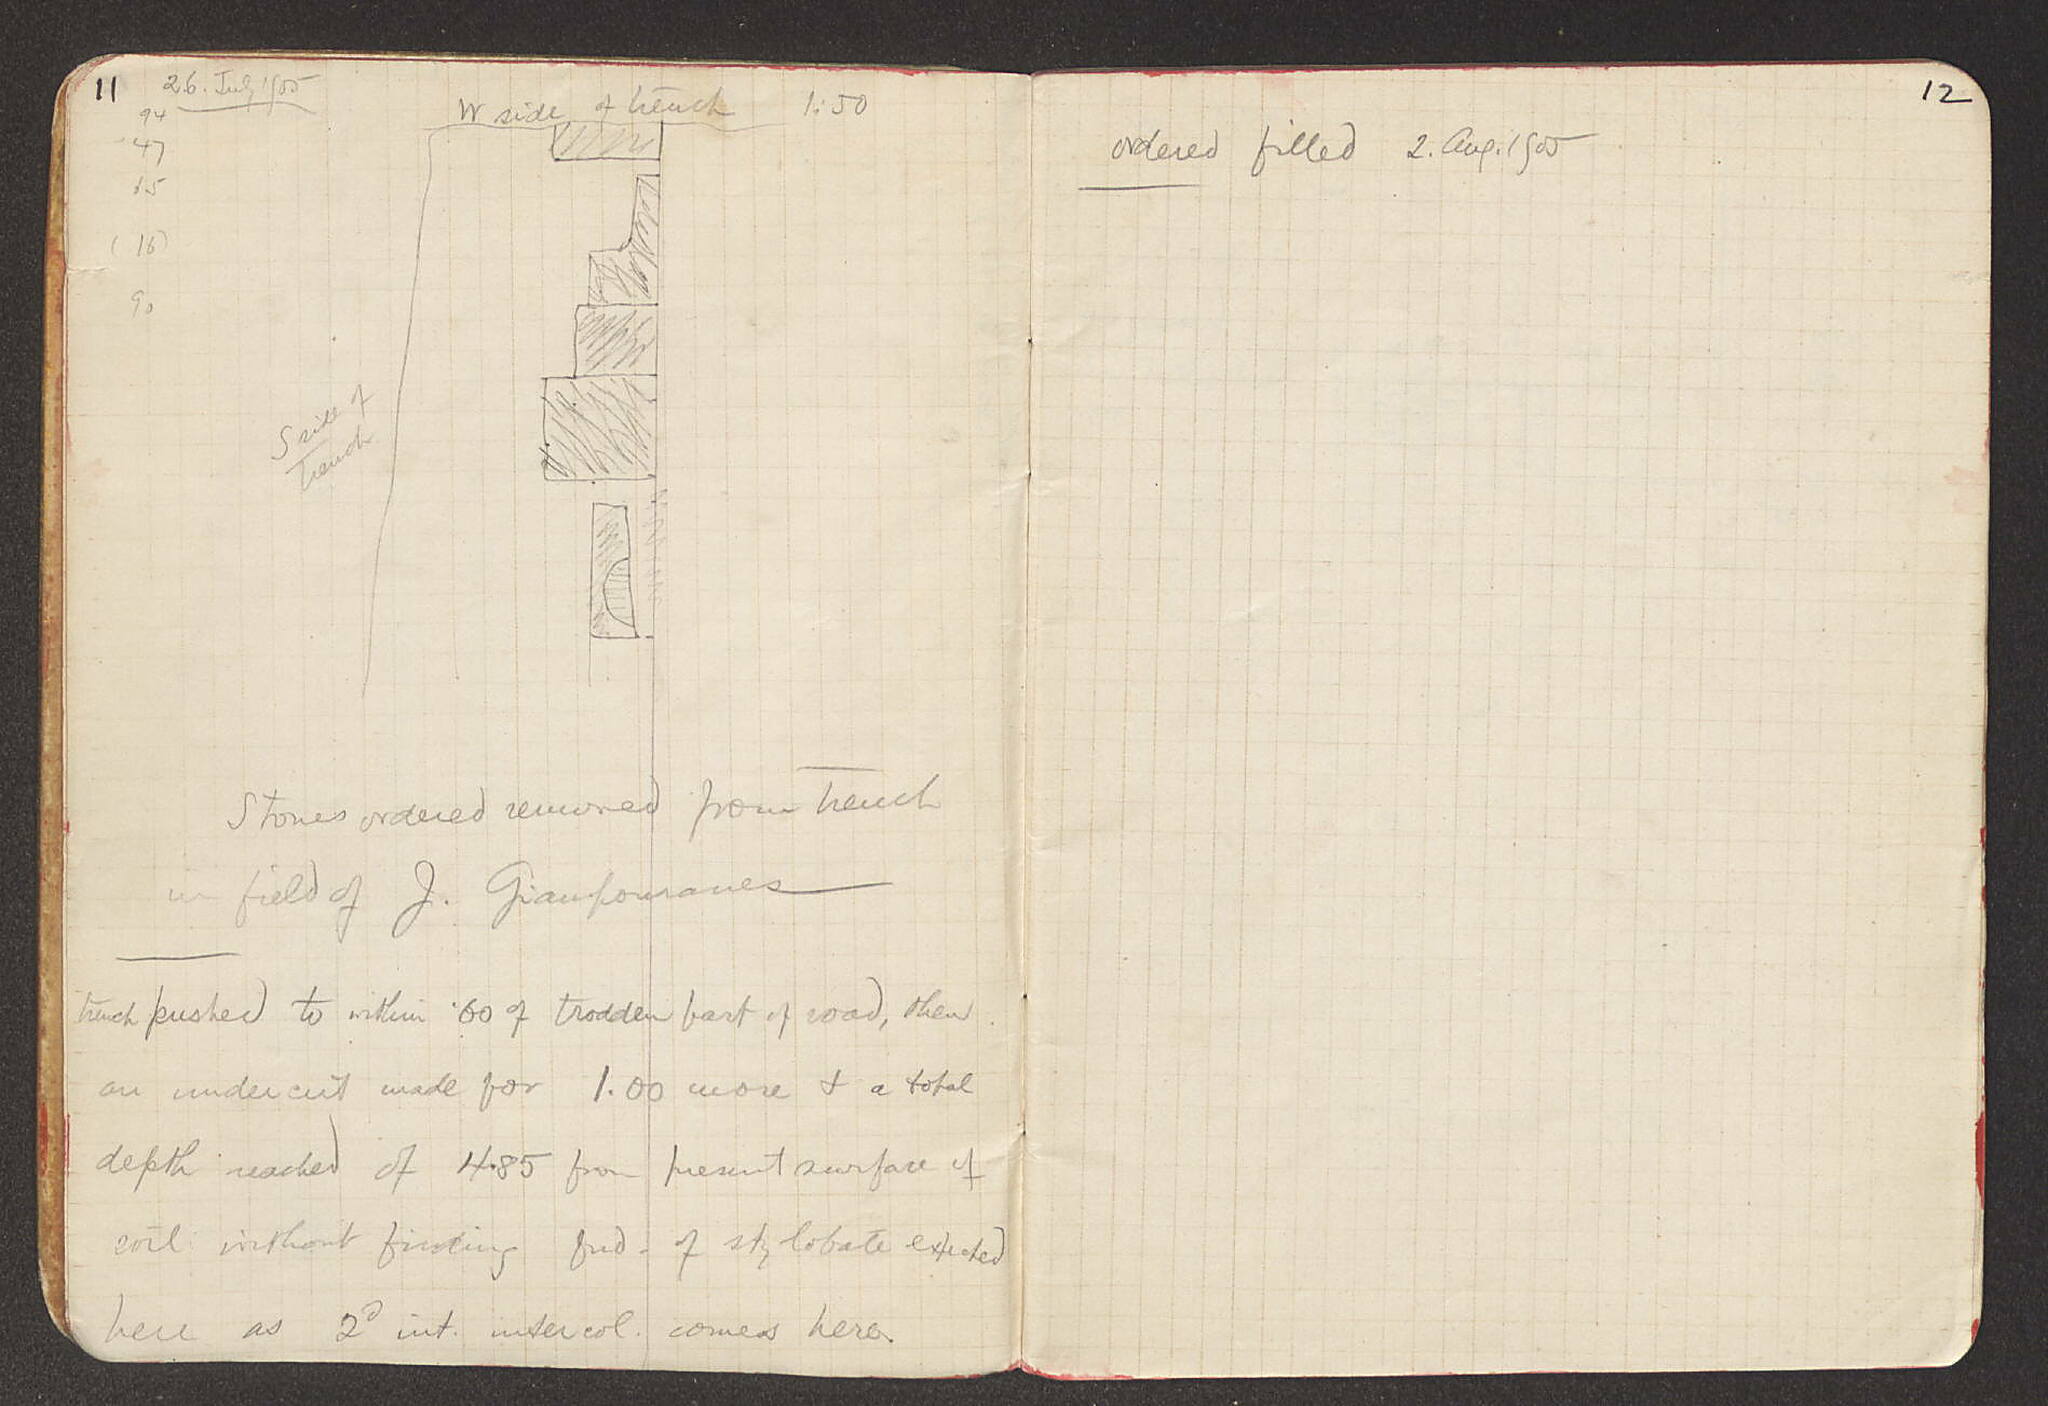 11
26. July 1905
W side of trench 1:50
94
47
15
(16)
90
S side of
trench
Stones ordered removed from trench
in field of J. Gianfouranes
trench pushed to within .60 of trodden part of road, then
an undercut made for 1.00 more & a total
depth reached of 4.85 from present surface of
soil without finding fnd. of stylobate expected
here as 2d int. intercol. comes here.
12
ordered filled 2. Aug. 1905